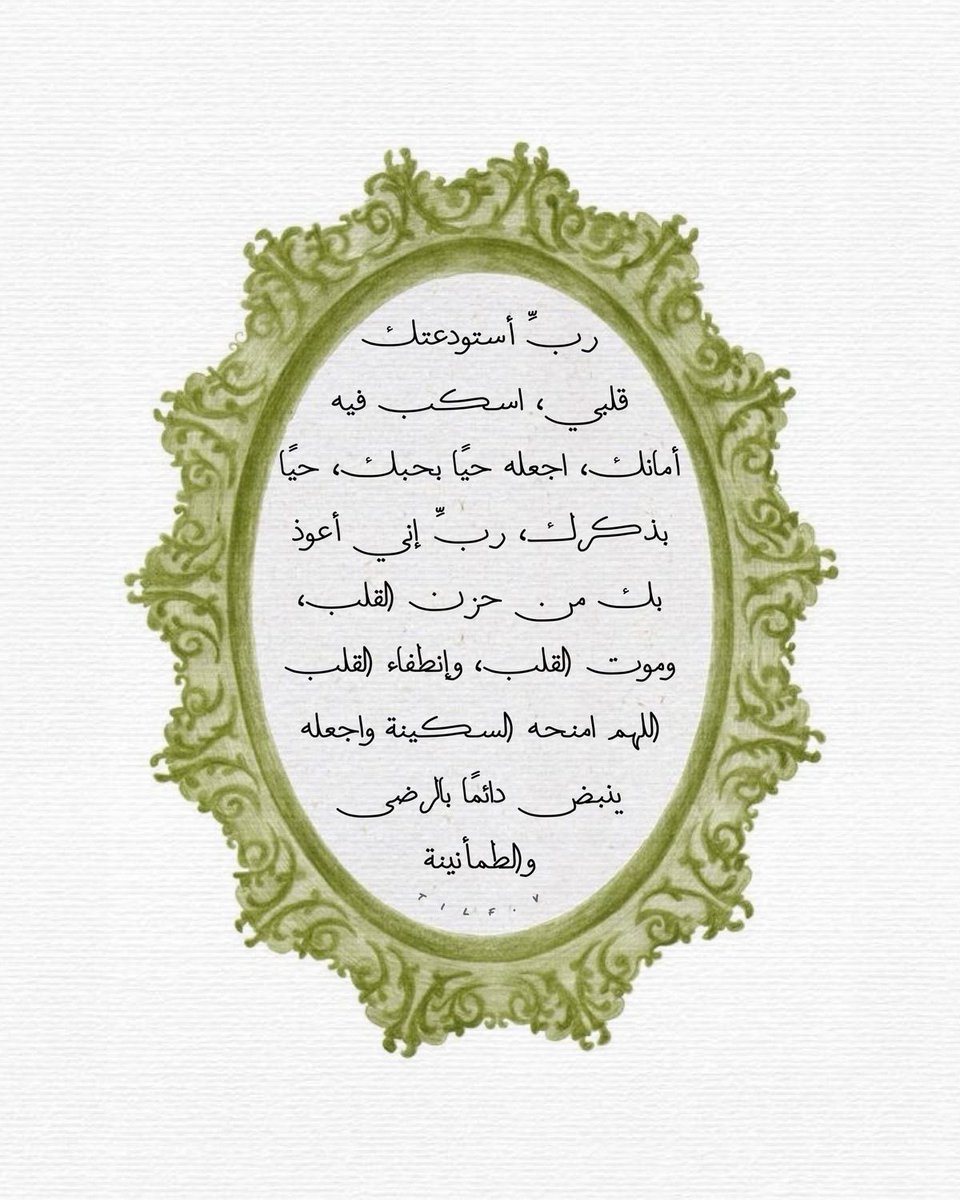 ربِّ أستودعتك
قلبي، اسكب فيه
أمانك، اجعله حيًا بحبك، حيًا
بذكرك، ربِّ إني أعوذ
بك من حزن القلب،
وموت القلب، وإنطفاء القلب
اللهم امنحه السكينة واجعله
ينبض دائمًا بالرضى
والطمأنينة
T I L F . V